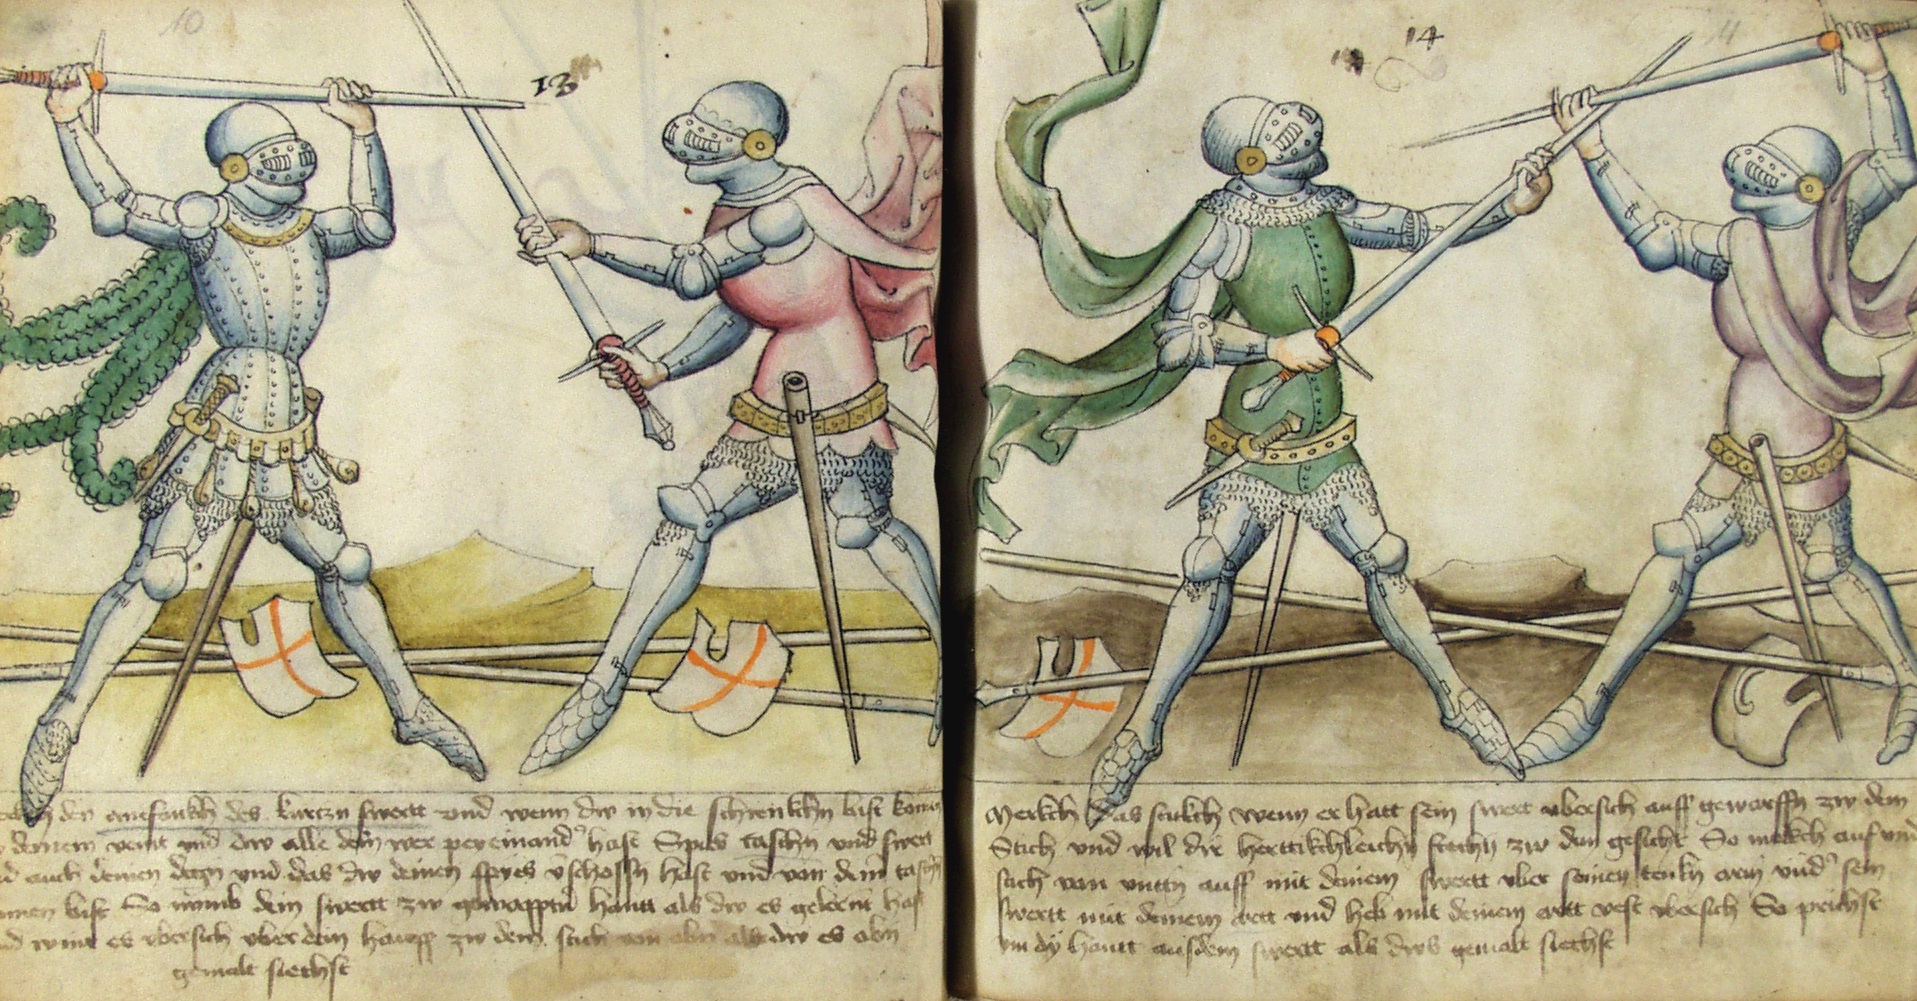 10
13
den anefankch des kurczn swertt und wenn dw in die schrenkchn bist komen
deinem veint und dw alle dein wer peyeinand hast Spies taschn und swert
auch deinen degn und das dw deinen spies vschossn hast und von dem taschn
bist So nymb dein swertt zw gewapptn hantt als dw es gelernt hast
wint es vbersich vber dein haupp zw dem stich von obn als dw es obn
gemalt siechst
14
11
Merkch das stukch wenn er hatt sein swert vbersich auff geworffn zw dem
Stich und wil dir herttikchleichn stechn zw dem gesicht So merkch auf und
stich von vnttn auff mit deinem swertt vber seinen tenkn arm und sein
swertt mit deinem ortt und heb mit deinem ortt vest vbersich So prichst
im dy hantt aus dem swertt als dws gemalt siechst